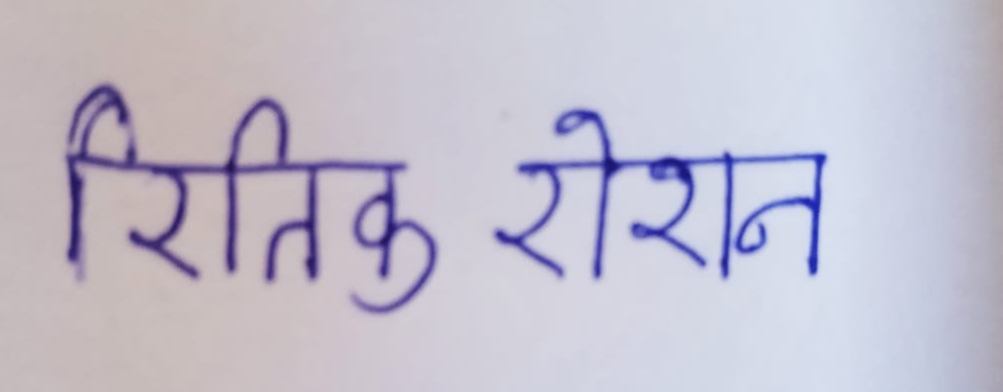 रितिक रोशन